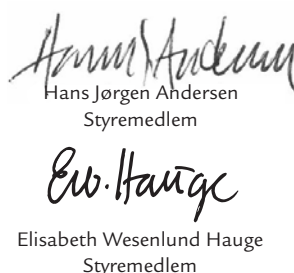 Hans Jørgen Andersen
Styremedlem
Ew. Hauge
Elisabeth Wesenlund Hauge
Styremedlem